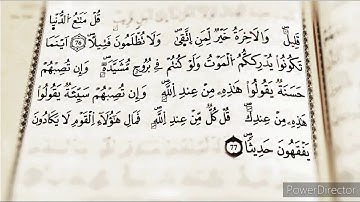 قُلْ مَتَٰعُ اُ۬لدُّنْيَا
قَلِيلٞ وَالَاخِرَةُ خَيْرٞ لِّمَنِ اِ۪تَّقَىٰ وَلَا تُظْلَمُونَ فَتِيلاًۖ 76 اَيْنَمَا
تَكُونُواْ يُدْرِككُّمُ اُ۬لْمَوْتُ وَلَوْ كُنتُمْ فِے بُرُوجٖ مُّشَيَّدَةٖۖ وَإِن تُصِبْهُمْ
حَسَنَةٞ يَقُولُواْ هَٰذِهِۦ مِنْ عِندِ اِ۬للَّهِۖ وَإِن تُصِبْهُمْ سَيِّئَةٞ يَقُولُواْ
هَٰذِهِۦ مِنْ عِندِكَۖ قُلْ كُلّٞ مِّنْ عِندِ اِ۬للَّهِۖ فَمَالِ هَٰؤُلَآءِ اِ۬لْقَوْمِ لَا يَكَادُونَ
يَفْقَهُونَ حَدِيثاٗۖ 77
PowerDirector